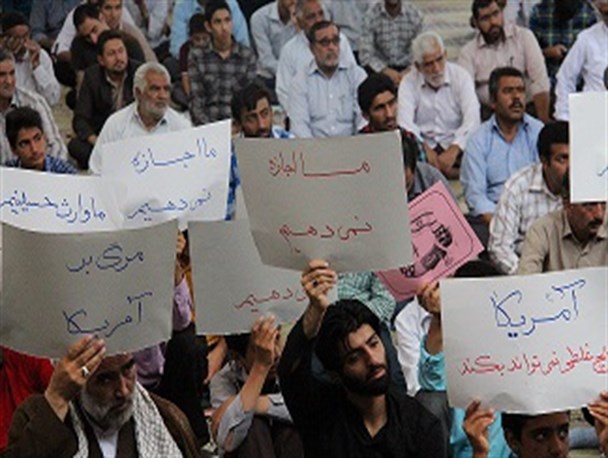 ما اجازه
نمی دهیم
ما اجازه
نمی دهیم
ما وارث حسینیم
مرگ بر
آمریکا
دهیم
آمریکا
غلطی نمی تواند بکند